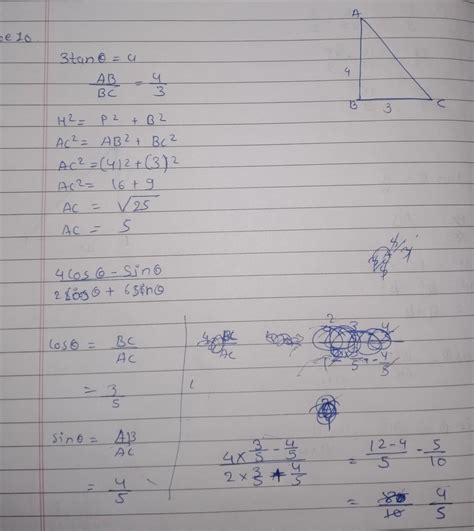 A
3tanθ = 4
AB/BC = 4/3
4
B 3 C
H² = P² + B²
AC² = AB² + BC²
AC² = (4)² + (3)²
AC² = 16 + 9
AC = √25
AC = 5
4cosθ - sinθ / 2cosθ + 6sinθ
cosθ = BC/AC
= 3/5
sinθ = AB/AC
= 4/5
4 × 3/5 - 4/5 / 2 × 3/5 + 4/5
= 12-4/5 - 5/10
= 4/5